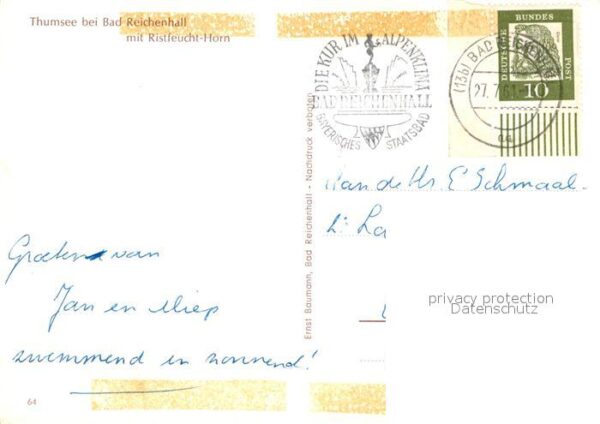 Thumsee bei Bad Reichenhall
mit Ristfeucht-Horn
DIE KUR IM ALPENKLIMA
BAD REICHENHALL
BAYERISCHES STAATSBAD
(13b) BAD REICHENHALL
27.7.61
DEUTSCHE BUNDES POST
10
Ernst Baumann, Bad Reichenhall - Nachdruck verboten
Aan de Hr. E Schmaal-
Groeten van
Jan en Miep
zwemmend en zonnend!
privacy protection
Datenschutz
64